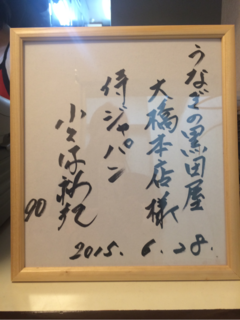 うなぎの黒田屋
大橋本店様
侍ジャパン
小久保裕紀
90
2015. 6. 28.